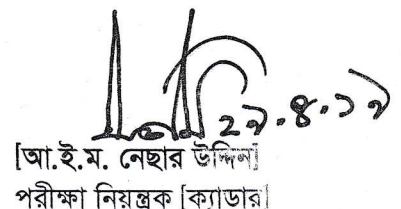 ২৯.৪.১৯
[আ.ই.ম. নেছার উদ্দিন]
পরীক্ষা নিয়ন্ত্রক [ক্যাডার]